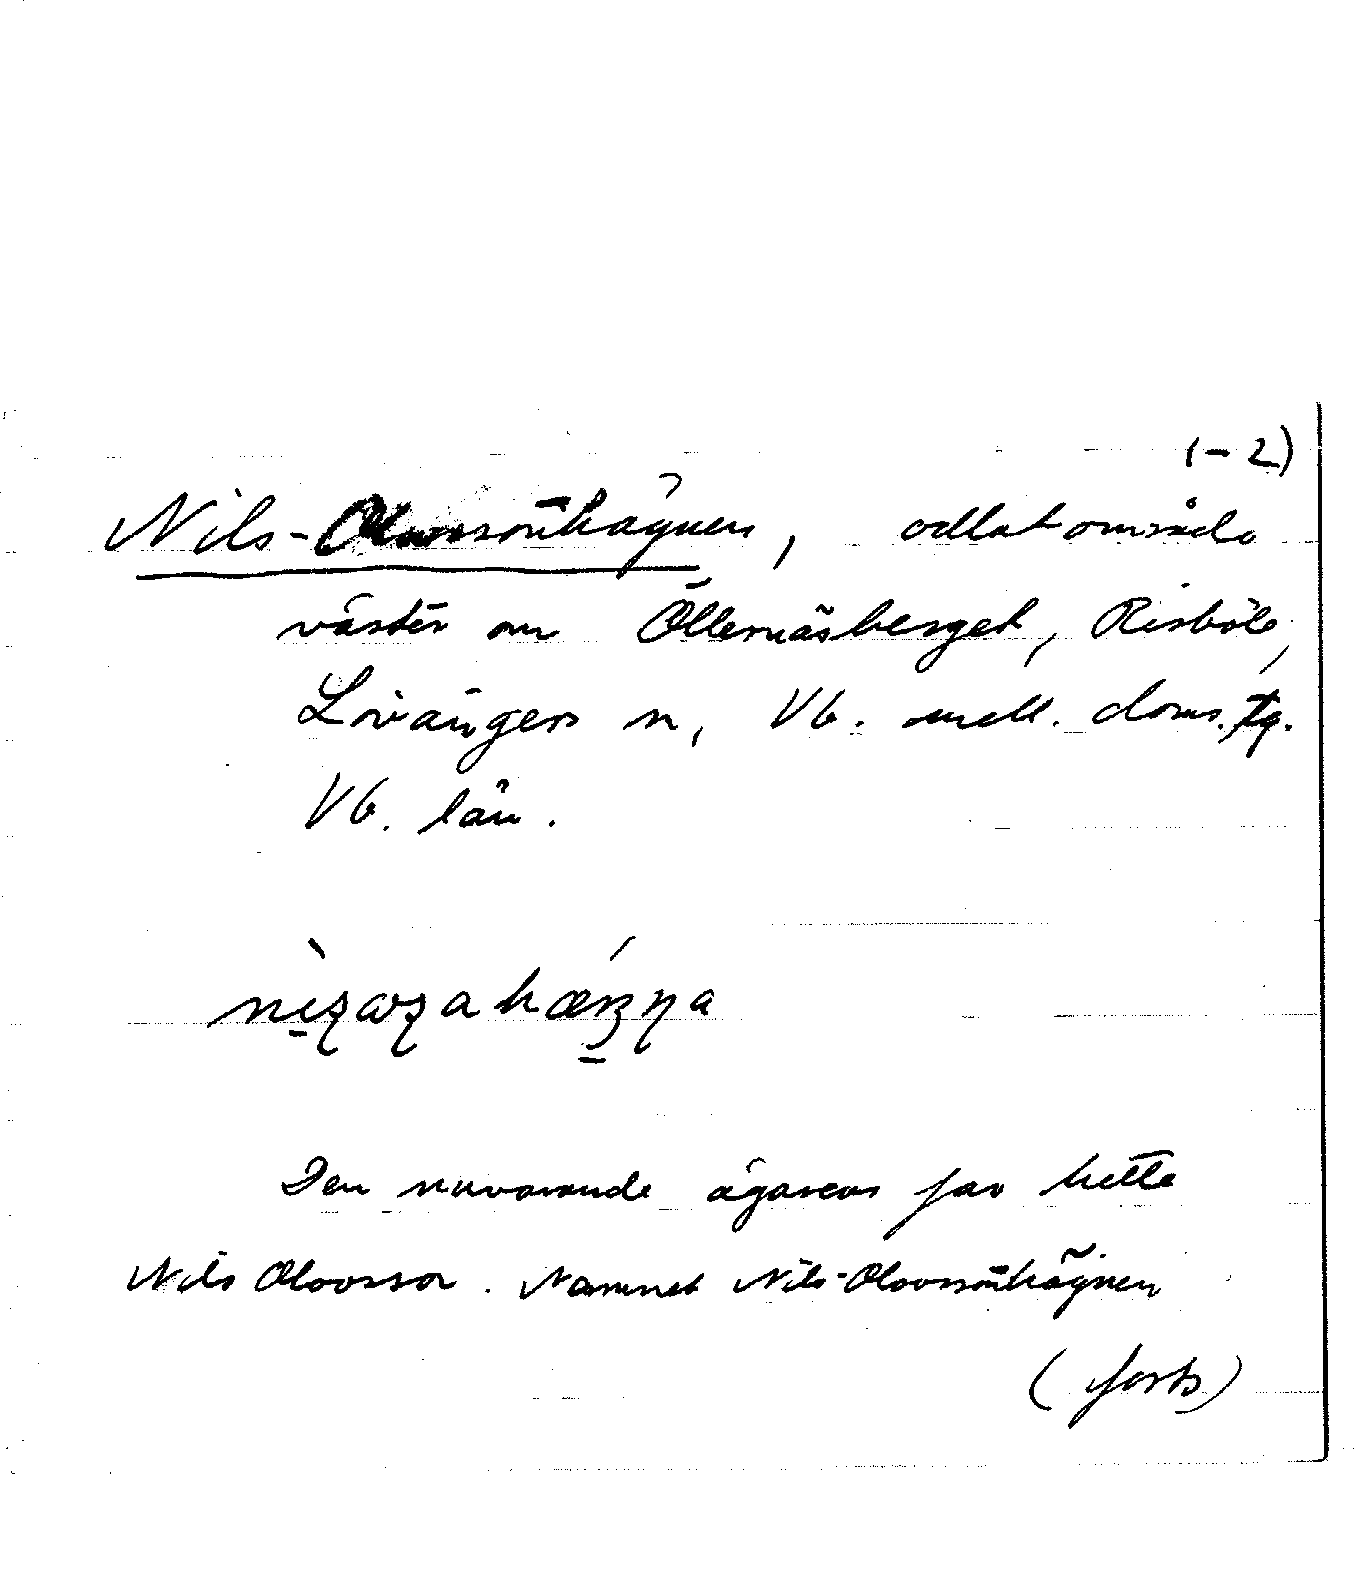 (-2)
Nils-Olovssonhägnen, odlat område
väster om Öllernäsberget, Risböle,
Lövångers sn, Vb. mell. doms. tg.
Vb. län.
Den nuvarande ägarens far hette
Nils Olovsson. Namnet Nils-Olovssonhägnen
(forts)